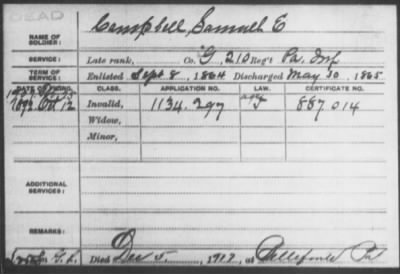 DEAD
NAME OF SOLDIER: Campbell, Samuel E
SERVICE: Late rank, Co. G, 210 Reg't Pa. Inf
TERM OF SERVICE: Enlisted Sept 8, 1864 Discharged May 30, 1865
CLASS. APPLICATION NO. LAW. CERTIFICATE NO.
1892 Oct 12 Invalid, 1134.297 887014
Widow,
Minor,
ADDITIONAL SERVICES:
REMARKS:
Died Dec 5, 1917, at Bellefonte Pa